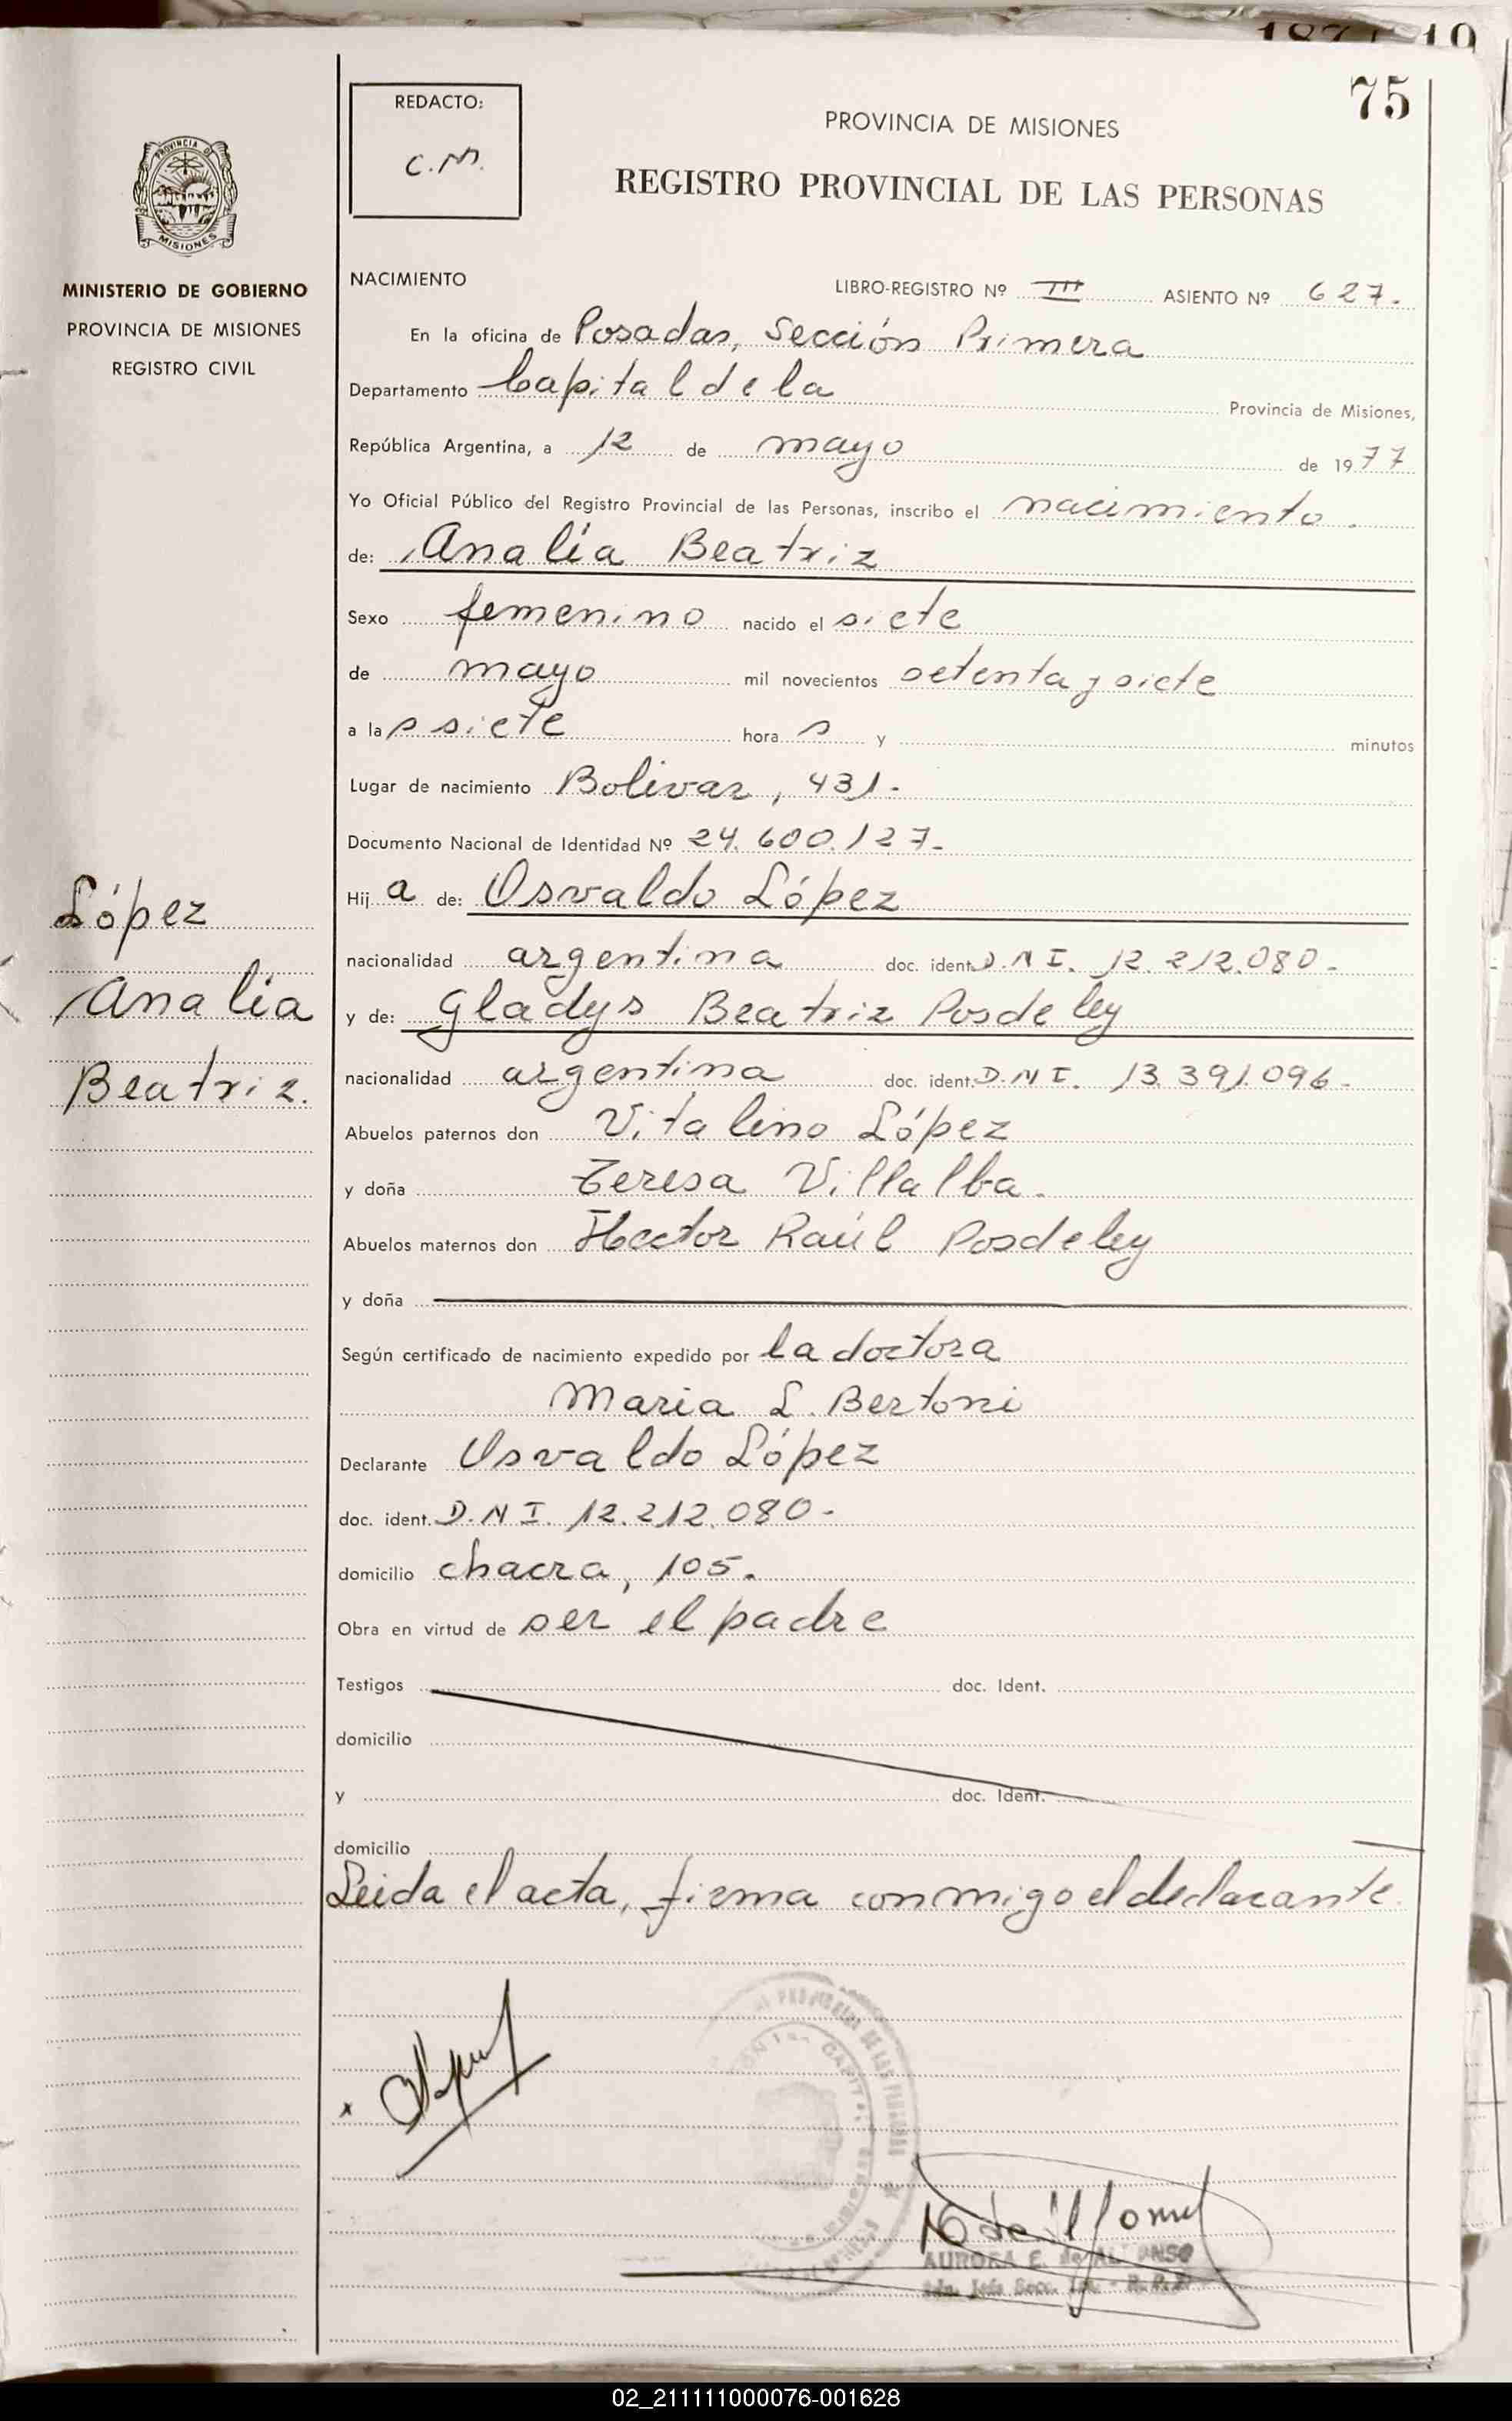 75
REDACTO:
C.M.
PROVINCIA DE MISIONES
REGISTRO PROVINCIAL DE LAS PERSONAS
PROVINCIA DE
MISIONES
MINISTERIO DE GOBIERNO
PROVINCIA DE MISIONES
REGISTRO CIVIL
NACIMIENTO LIBRO-REGISTRO Nº III ASIENTO Nº 627.
En la oficina de Posadas, Sección Primera
Departamento Capital de la Provincia de Misiones,
República Argentina, a 12 de mayo de 1977
Yo Oficial Público del Registro Provincial de las Personas, inscribo el nacimiento.
de: Analía Beatriz
Sexo femenino nacido el siete
de mayo mil novecientos setenta y siete
a las siete hora s y minutos
Lugar de nacimiento Bolivar, 431.
Documento Nacional de Identidad Nº 24.600.127.-
Hij a de: Osvaldo López
nacionalidad argentina doc. ident. D.N.I. 12.212.080-
y de: Gladys Beatriz Posdeley
nacionalidad argentina doc. ident. D.N.I. 13.391.096-
Abuelos paternos don Vitalino López
y doña Teresa Villalba.
Abuelos maternos don Hector Raúl Posdeley
y doña
Según certificado de nacimiento expedido por la doctora
Maria L. Bertoni
Declarante Osvaldo López
doc. ident. D.N.I. 12.212.080-
domicilio chacra, 105.
Obra en virtud de ser el padre
Testigos doc. Ident.
domicilio
y doc. Ident.
domicilio
Leida el acta, firma conmigo el declarante.
López
Analía
Beatriz.
AURORA E. de ALFONSO
02_211111000076-001628